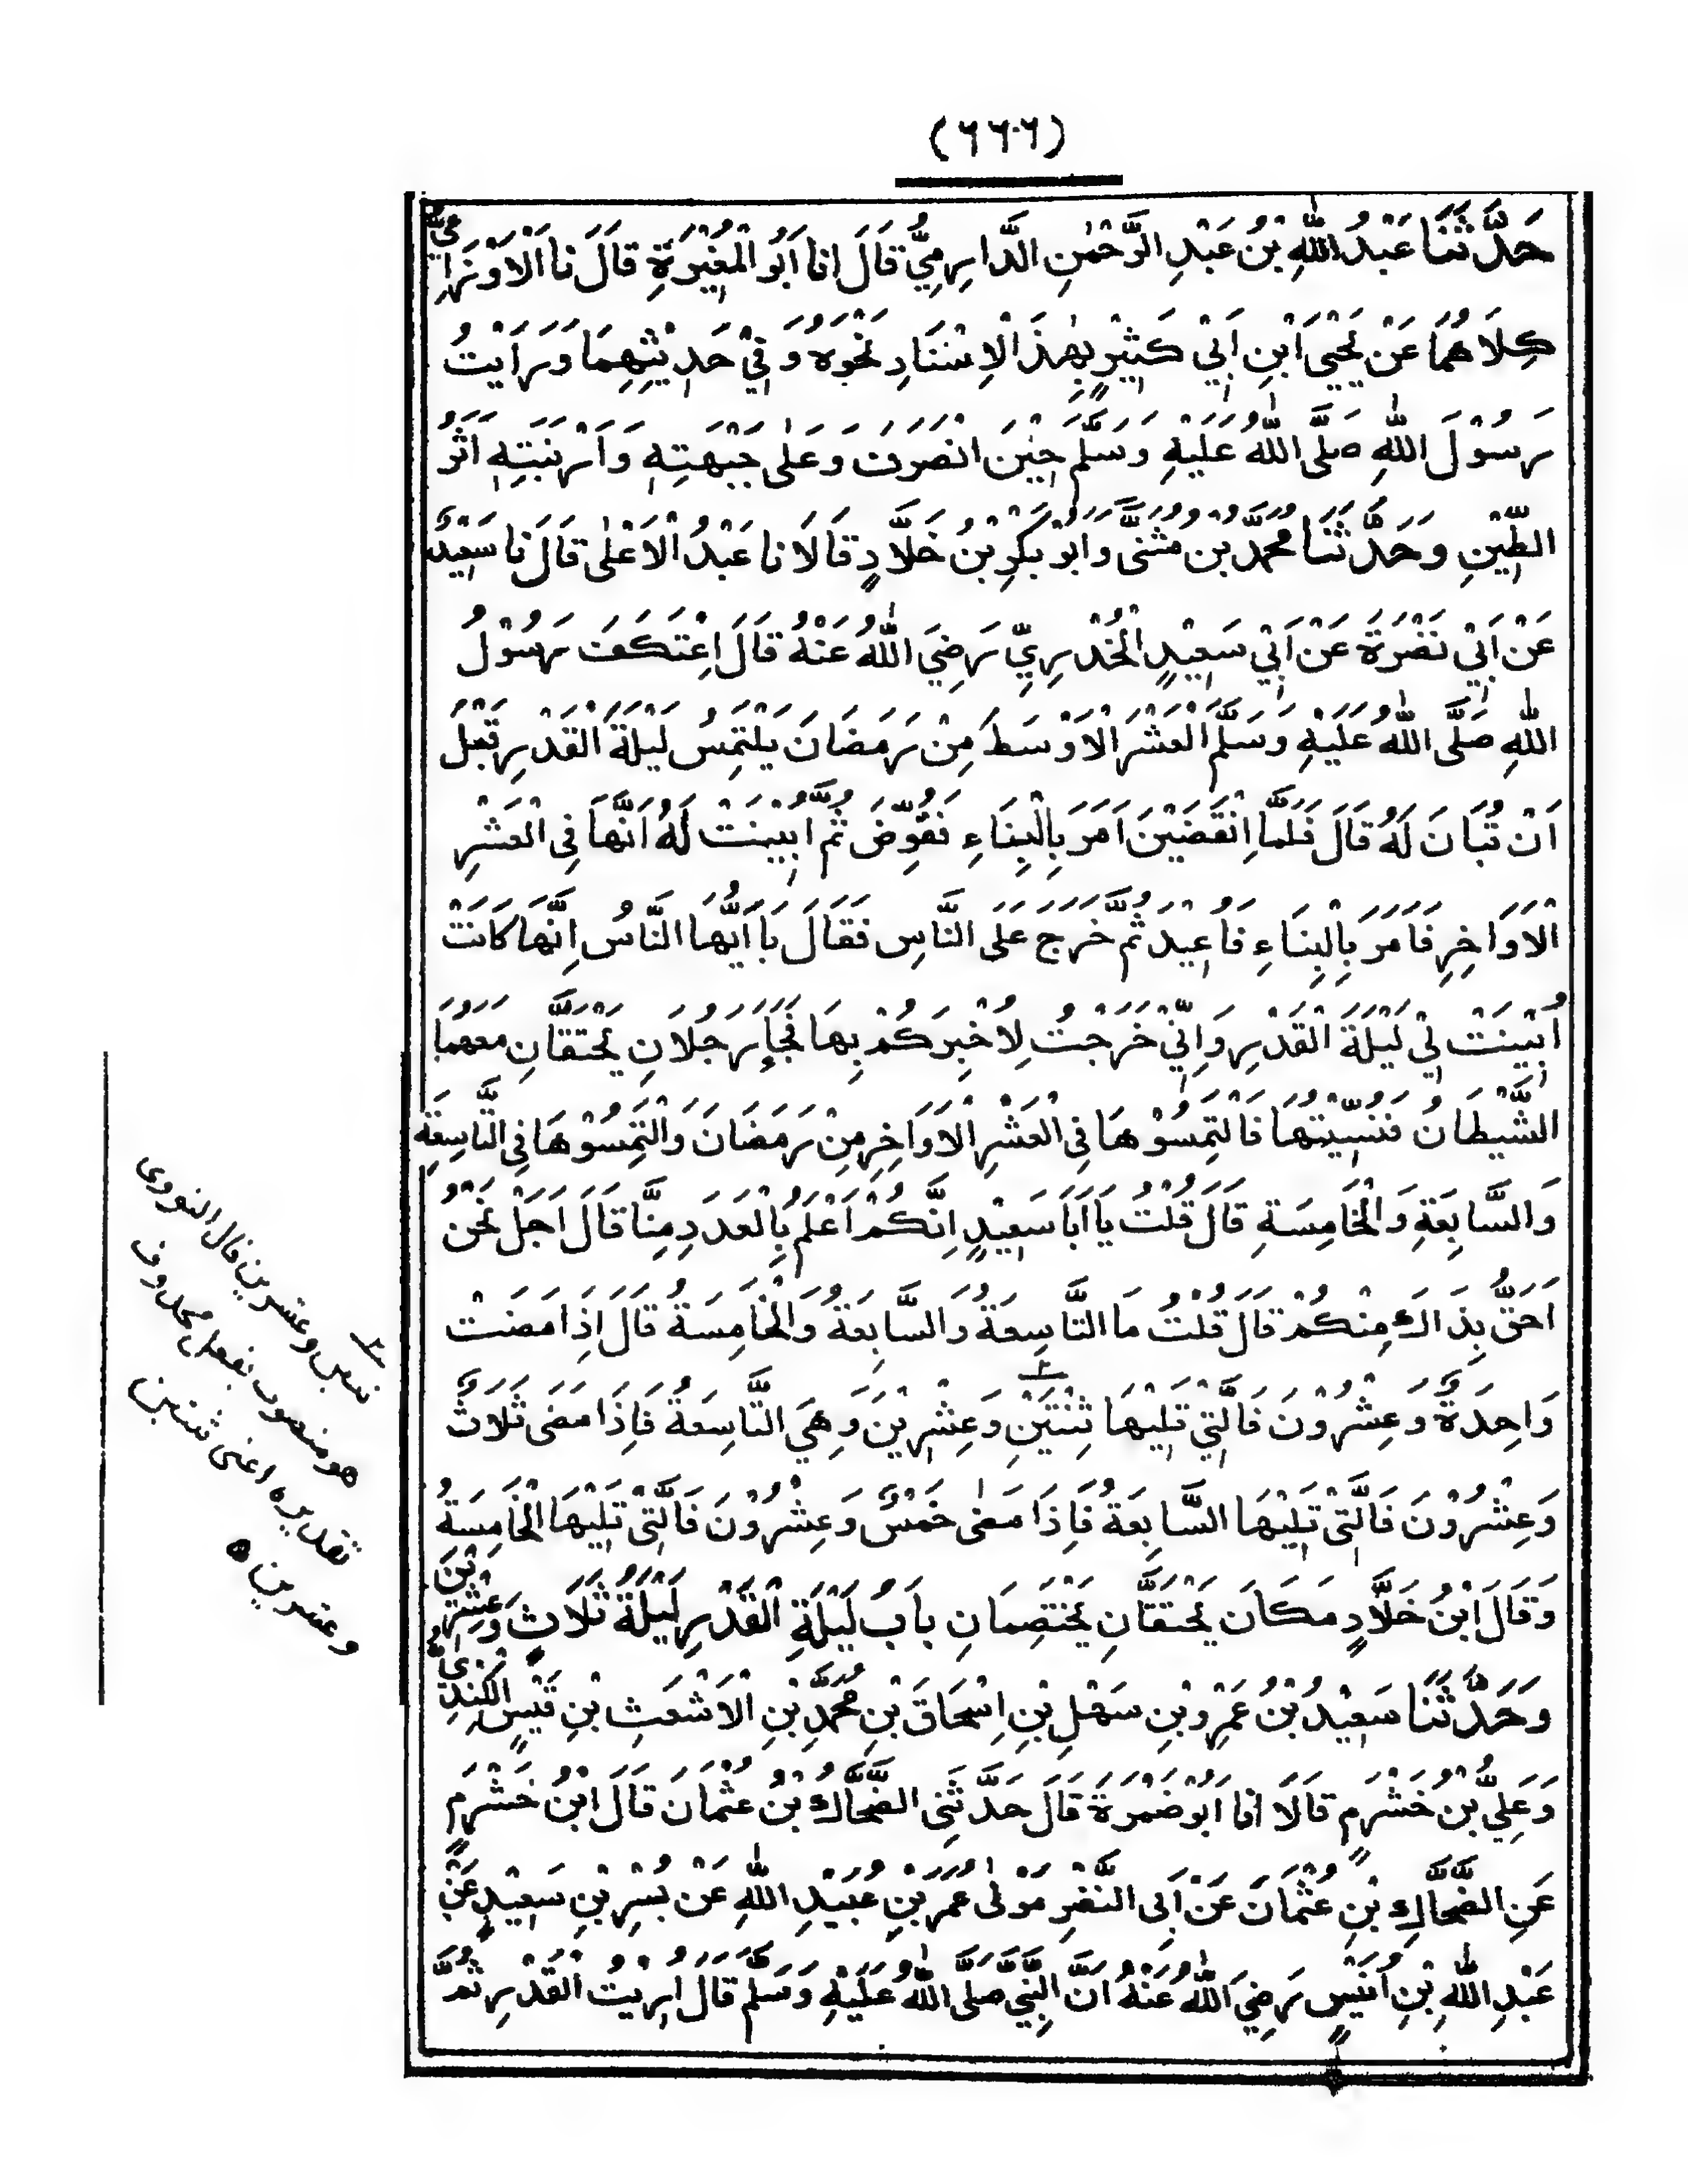 (٦٦٠٦)
حَدَّثَنَا عَبْدُ اللّٰهِ بْنُ عَبْدِ الرَّحْمٰنِ الدَّارِمِيُّ قَالَ انا اَبُو الْمُغِيْرَةِ قَالَ نا الْاَوْزَاعِيُّ
كِلَاهُمَا عَنْ يَحْيَى ابْنِ اَبِيْ كَثِيْرٍ بِهٰذَ الْاِسْنَادِ نَحْوَهُ وَفِيْ حَدِيْثِهِمَا وَرَاَيْتُ
رَسُوْلَ اللّٰهِ صَلَّى اللّٰهُ عَلَيْهِ وَسَلَّمَ حِيْنَ انْصَرَفَ وَعَلٰى جَبْهَتِهٖ وَاَرْنَبَتِهٖ اَثَرُ
الطِّيْنِ وَحَدَّثَنَا مُحَمَّدُ بْنُ مُثَنَّى وَاَبُوْ بَكْرِ بْنُ خَلَّادٍ قَالَا نا عَبْدُ الْاَعْلٰى قَالَ نا سَعِيْدٌ
عَنْ اَبِيْ نَضْرَةَ عَنْ اَبِيْ سَعِيْدٍ الْخُدْرِيِّ رَضِيَ اللّٰهُ عَنْهُ قَالَ اعْتَكَفَ رَسُوْلُ
اللّٰهِ صَلَّى اللّٰهُ عَلَيْهِ وَسَلَّمَ الْعَشْرَ الْاَوْسَطَ مِنْ رَمَضَانَ يَلْتَمِسُ لَيْلَةَ الْقَدْرِ قَبْلَ
اَنْ تُبَانَ لَهُ قَالَ فَلَمَّا انْقَضَيْنَ اَمَرَ بِالْبِنَاءِ فَقُوِّضَ ثُمَّ اُبِيْنَتْ لَهُ اَنَّهَا فِى الْعَشْرِ
الْاَوَاخِرِ فَاَمَرَ بِالْبِنَاءِ فَاُعِيْدَ ثُمَّ خَرَجَ عَلَى النَّاسِ فَقَالَ يَا اَيُّهَا النَّاسُ اِنَّهَا كَانَتْ
اُبِيْنَتْ لِيْ لَيْلَةَ الْقَدْرِ وَاِنِّيْ خَرَجْتُ لِاُخْبِرَكُمْ بِهَا فَجَاءَ رَجُلَانِ يَحْتَقَّانِ مَعَهُمَا
الشَّيْطَانُ فَنُسِّيْتُهَا فَالْتَمِسُوْهَا فِى الْعَشْرِ الْاَوَاخِرِ مِنْ رَمَضَانَ وَالْتَمِسُوْهَا فِى التَّاسِعَةِ
وَالسَّابِعَةِ وَالْخَامِسَةِ قَالَ قُلْتُ يَا اَبَا سَعِيْدٍ اِنَّكُمْ اَعْلَمُ بِالْعَدَدِ مِنَّا قَالَ اَجَلْ نَحْنُ
اَحَقُّ بِذَاكَ مِنْكُمْ قَالَ قُلْتُ مَا التَّاسِعَةُ وَالسَّابِعَةُ وَالْخَامِسَةُ قَالَ اِذَا مَضَتْ
وَاحِدَةٌ وَعِشْرُوْنَ فَالَّتِيْ تَلِيْهَا ثِنْتَيْنِ وَعِشْرِيْنَ وَهِيَ التَّاسِعَةُ فَاِذَا مَضٰى ثَلَاثٌ
وَعِشْرُوْنَ فَالَّتِىْ تَلِيْهَا السَّابِعَةُ فَاِذَا مَضٰى خَمْسٌ وَعِشْرُوْنَ فَالَّتِىْ تَلِيْهَا الْخَامِسَةُ
وَقَالَ ابْنُ خَلَّادٍ مَكَانَ يَحْتَقَّانِ يَخْتَصِمَانِ بَابُ لَيْلَةِ الْقَدْرِ لَيْلَةُ ثَلَاثٍ وَعِشْرِيْنَ
وَحَدَّثَنَا سَعِيْدُ بْنُ عَمْرِو بْنِ سَهْلِ بْنِ اِسْحَاقَ بْنِ مُحَمَّدِ بْنِ الْاَشْعَثِ بْنِ قَيْسٍ الْكِنْدِيُّ
وَعَلِيُّ بْنُ خَشْرَمٍ قَالَا انا اَبُوْ ضَمْرَةَ قَالَ حَدَّثَنِى الضَّحَّاكُ بْنُ عُثْمَانَ قَالَ ابْنُ خَشْرَمٍ
عَنِ الضَّحَّاكِ بْنِ عُثْمَانَ عَنْ اَبِى النَّضْرِ مَوْلٰى عُمَرَ بْنِ عُبَيْدِ اللّٰهِ عَنْ بُسْرِ بْنِ سَعِيْدٍ عَنْ
عَبْدِ اللّٰهِ بْنِ اُنَيْسٍ رَضِيَ اللّٰهُ عَنْهُ اَنَّ النَّبِيَّ صَلَّى اللّٰهُ عَلَيْهِ وَسَلَّمَ قَالَ اُرِيْتُ الْقَدْرِ ثُمَّ
وعشرين قال النووى
هو منصوب بفعل محذوف
تقديره اعنى ثنتين
وعشرين ٥